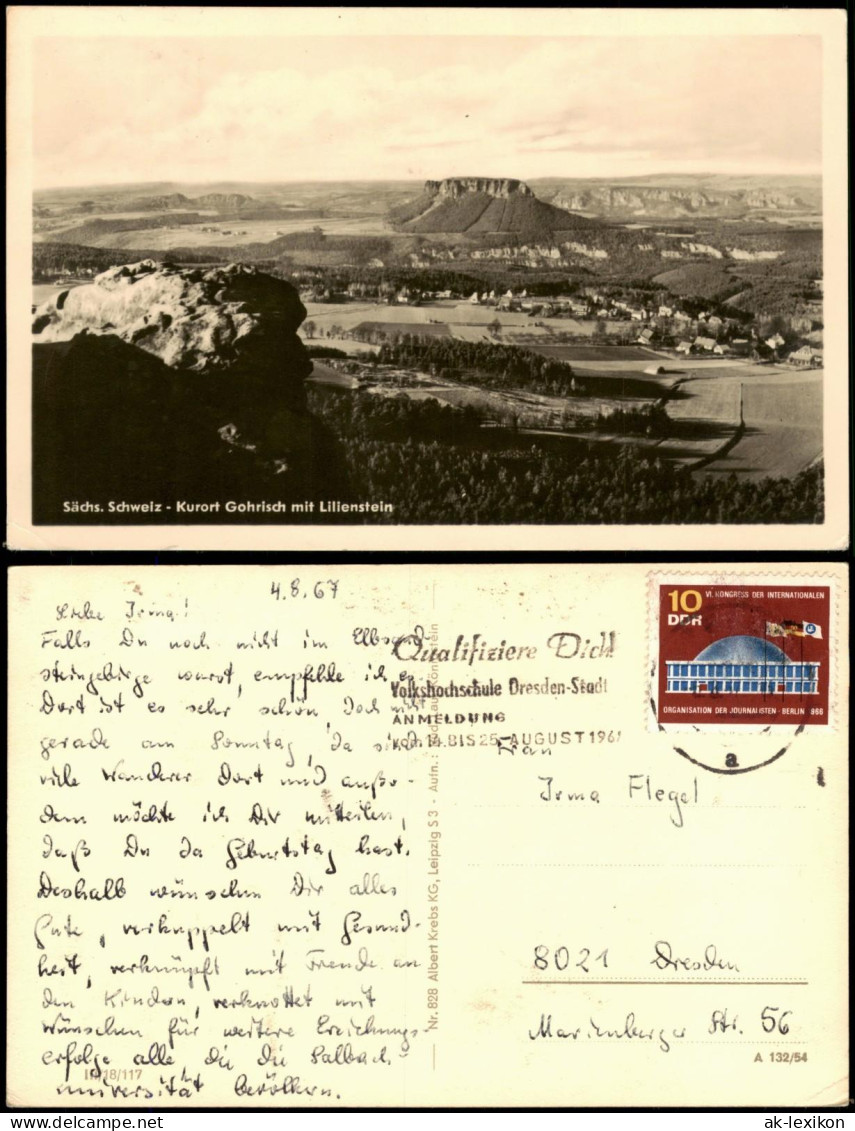 Sächs. Schweiz - Kurort Gohrisch mit Lilienstein
4.8.67
Liebe Irma!
Falls Du noch nicht im Elbsand-
steingebirge warst, empfehle ich es
Dort ist es sehr schön, doch nicht
gerade am Sonntag, da sind
viele Wanderer dort und außer-
dem möchte ich Dir mitteilen,
daß Du da Geburtstag hast.
Deshalb wünschen Dir alles
Gute, verkuppelt mit Gesund-
heit, verknüpft mit Freude an
den Kindern, verknotet mit
Wünschen für weitere Erziehungs-
erfolge alle, die die
universität bevölkern.
III/18/117
Nr. 828 Albert Krebs KG, Leipzig S 3 - Aufn.:
Qualifiziere Dich!
Volkshochschule Dresden-Stadt
ANMELDUNG
vom 14. BIS 25. AUGUST 1967
10
DDR
VI. KONGRESS DER INTERNATIONALEN
ORGANISATION DER JOURNALISTEN · BERLIN 1966
a
Frau
Irma Flegel
8021 Dresden
Marienberger Str. 56
A 132/54
ak-lexikon